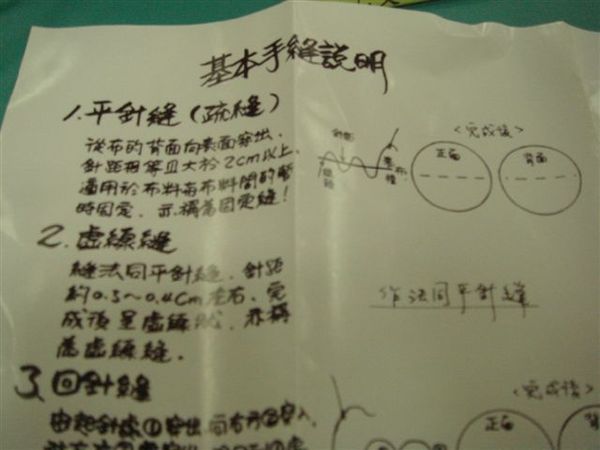 基本手縫說明
1.平針縫(疏縫)
從布的背面向表面穿出,
針距相等且大於2cm以上,
適用於布料與布料間的暫
時固定,亦稱為固定縫!
針距
布
<完成後>
正面
背面
2.虛線縫
縫法同平針縫,針距
約0.3~0.4cm左右,完
成後呈虛線狀,亦稱
為虛線縫.
作法同平針縫
3.回針縫
由起針處①穿出,向右方②穿入,
<完成後>
正面